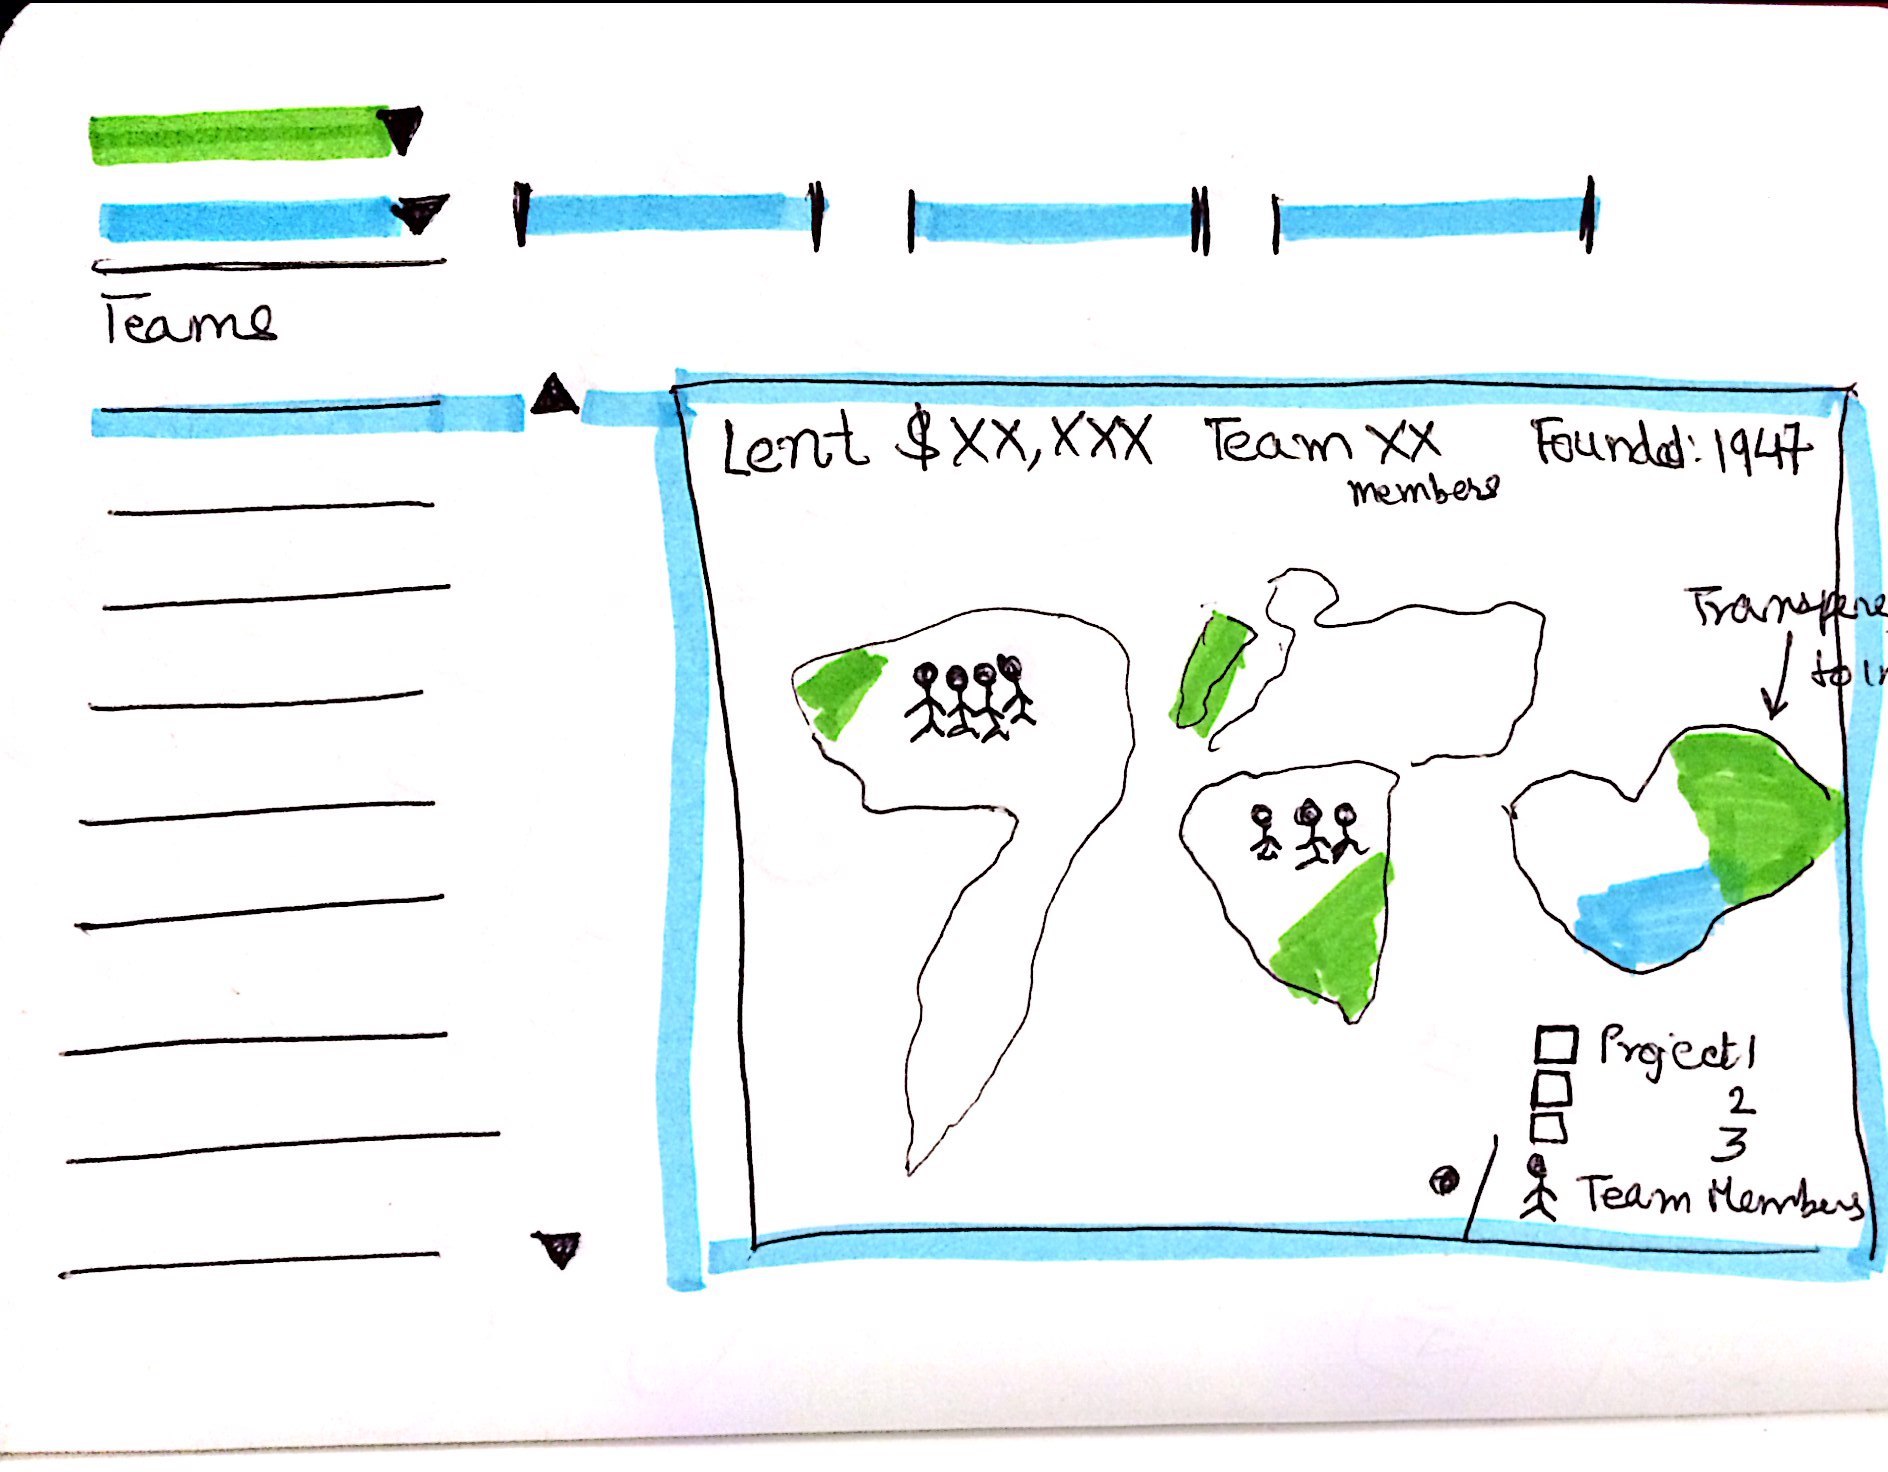 Teams
Lent $XX,XXX Team XX Founded: 1947
members
to
Project 1
2
3
Team Members